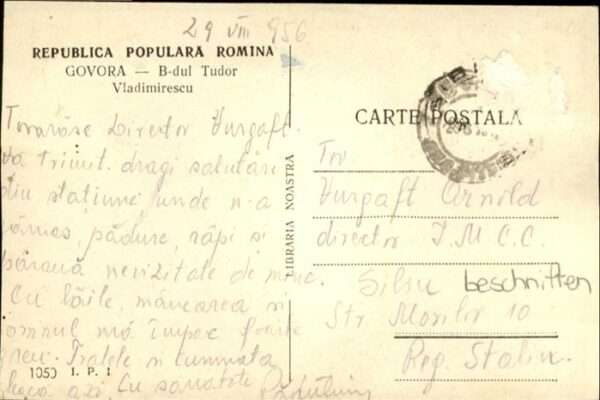 29 VIII 956
REPUBLICA POPULARA ROMINA
GOVORA — B-dul Tudor
Vladimirescu
Tovarășe Director Vurgaft.
Vă trimit dragi salutări
din stațiune unde n-a
rămas pădure, râpi și
nevizitate de mine.
Cu băile, mâncarea și
somnul mă împac foarte
greu. Fratele și cumnata
pleca azi. Cu sănătate
1050 I. P. 1
LIBRARIA NOASTRA
CARTE POSTALA
Tov
Vurgaft Arnold
director I.M.C.C.
Sibiu beschnitten
Str Morilor 10
Reg. Stalin.